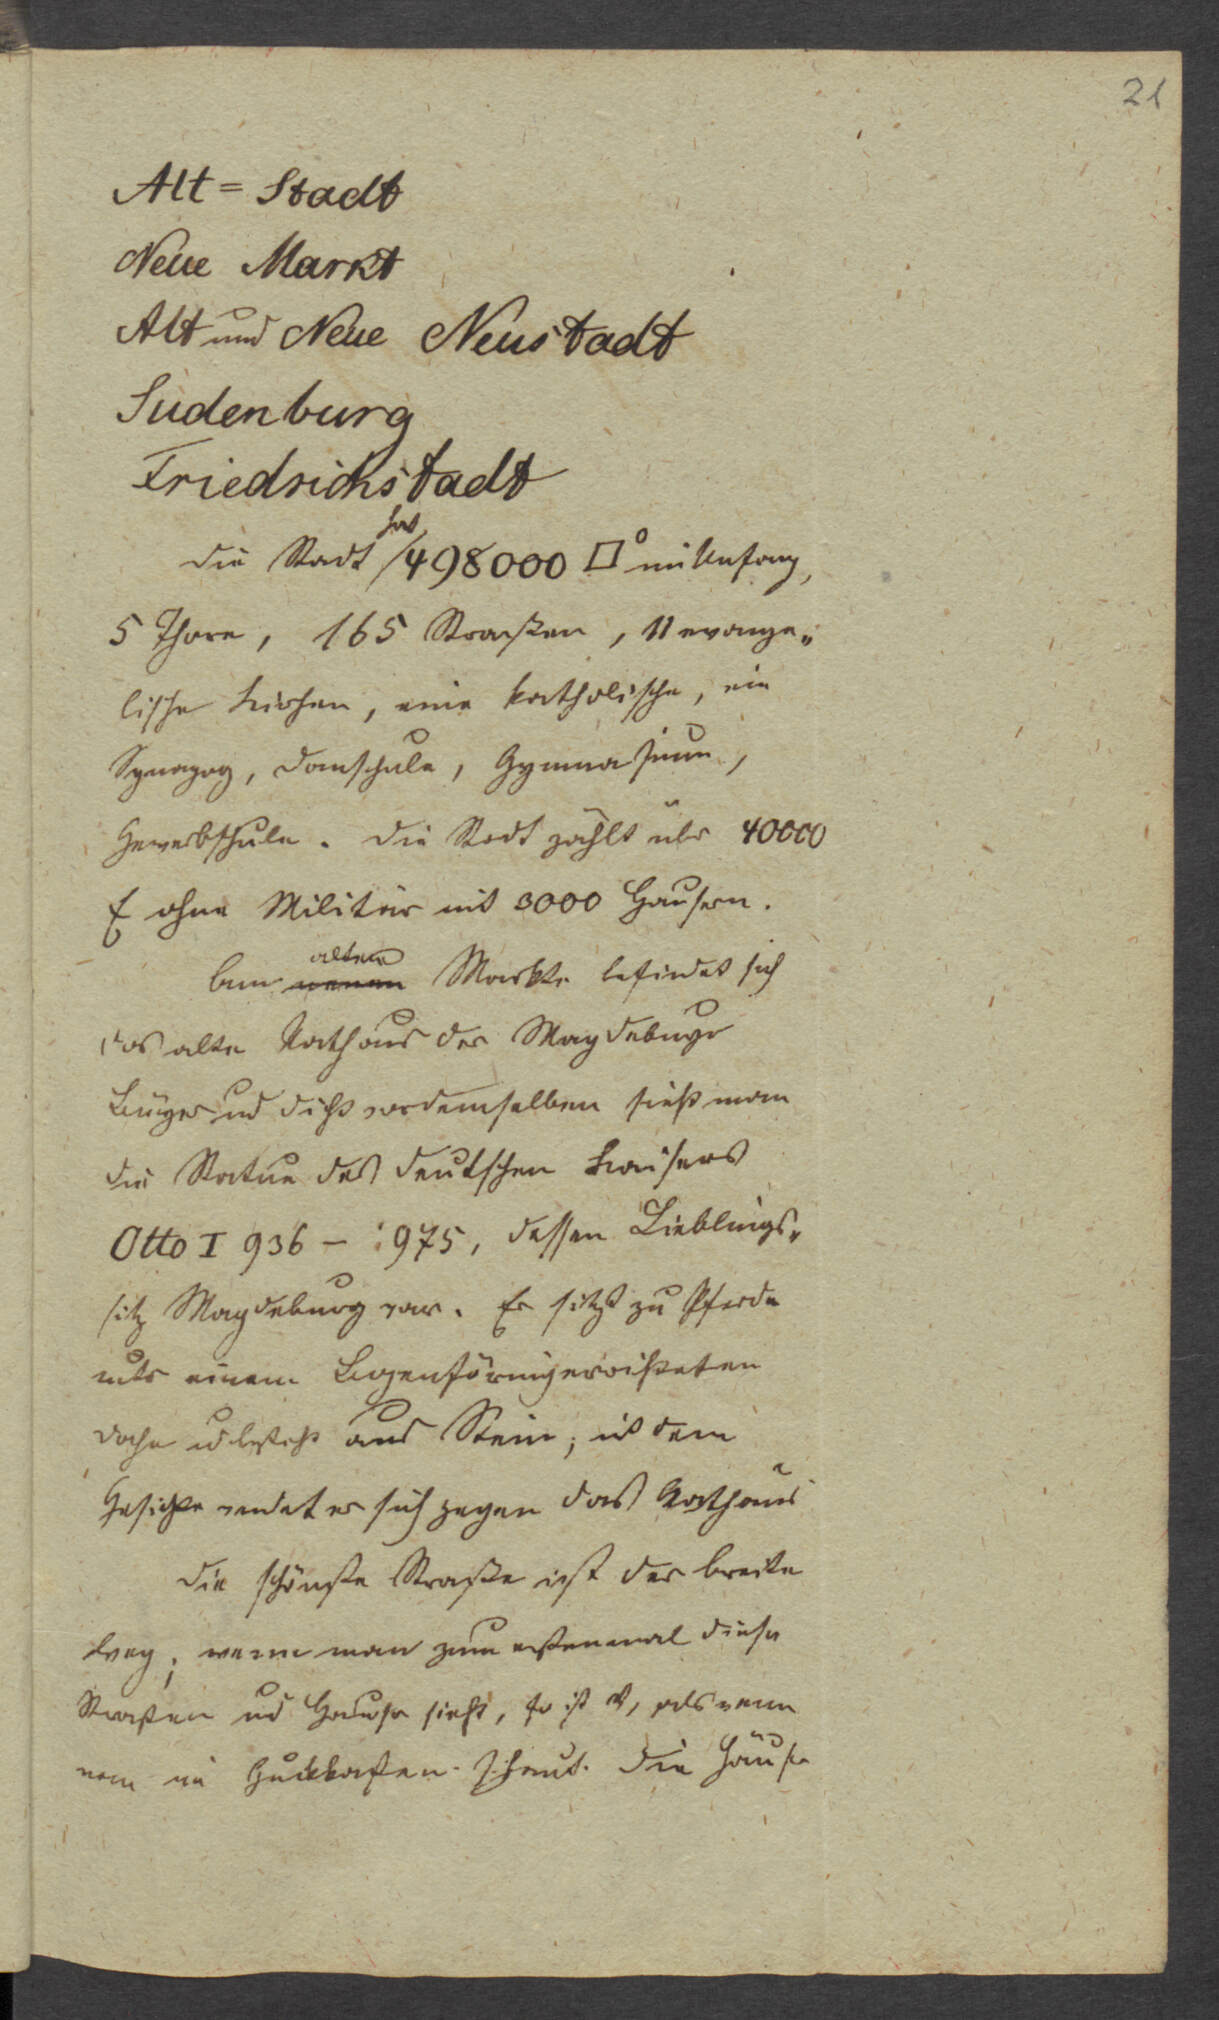 21
Alt=Stadt
Neue Markt
Alt und Neue Neustadt
Sudenburg
Friedrichstadt
hat
Die Stadt 498000 □° im Umfang,
5 Thore, 165 Straßen, 11 evange„
lische Kirchen, eine katholische, ein
Synagog, Domschule, Gymnasium,
Gewerbschule. Die Stadt zählt über 40000
E ohne Militär mit 3000 Häusern.
alten
Am neuen Markte befindet sich
das alte Rathaus der Magdeburger
Bürger und dicht vor demselben sieht man
die Statue des deutschen Kaisers
Otto I 936 – 975, dessen Lieblings„
sitz Magdeburg war. Er sitzt zu Pferde
unter einem Bogenförmig
Dache und besteht aus Stein; mit dem
Gesichte wendet er sich gegen das Rathaus
Die schönste Straße ist der breite
Weg; wenn man zum erstenmal diese
Straßen und Häuser sieht, so ist es, als wenn
man in Guckkasten schaut. Die Häuser